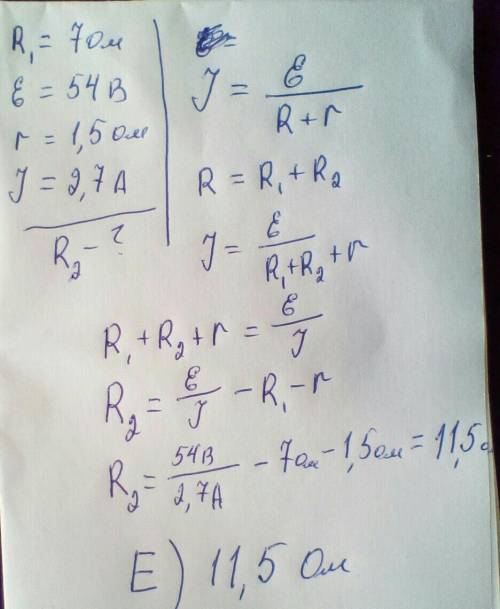 R₁ = 7 Ом
Ɛ = 54 В
r = 1,5 Ом
J = 2,7 А
R₂ - ?
J = Ɛ / (R + r)
R = R₁ + R₂
J = Ɛ / (R₁ + R₂ + r)
R₁ + R₂ + r = Ɛ / J
R₂ = Ɛ / J - R₁ - r
R₂ = 54 В / 2,7 А - 7 Ом - 1,5 Ом = 11,5 О
E) 11,5 Ом